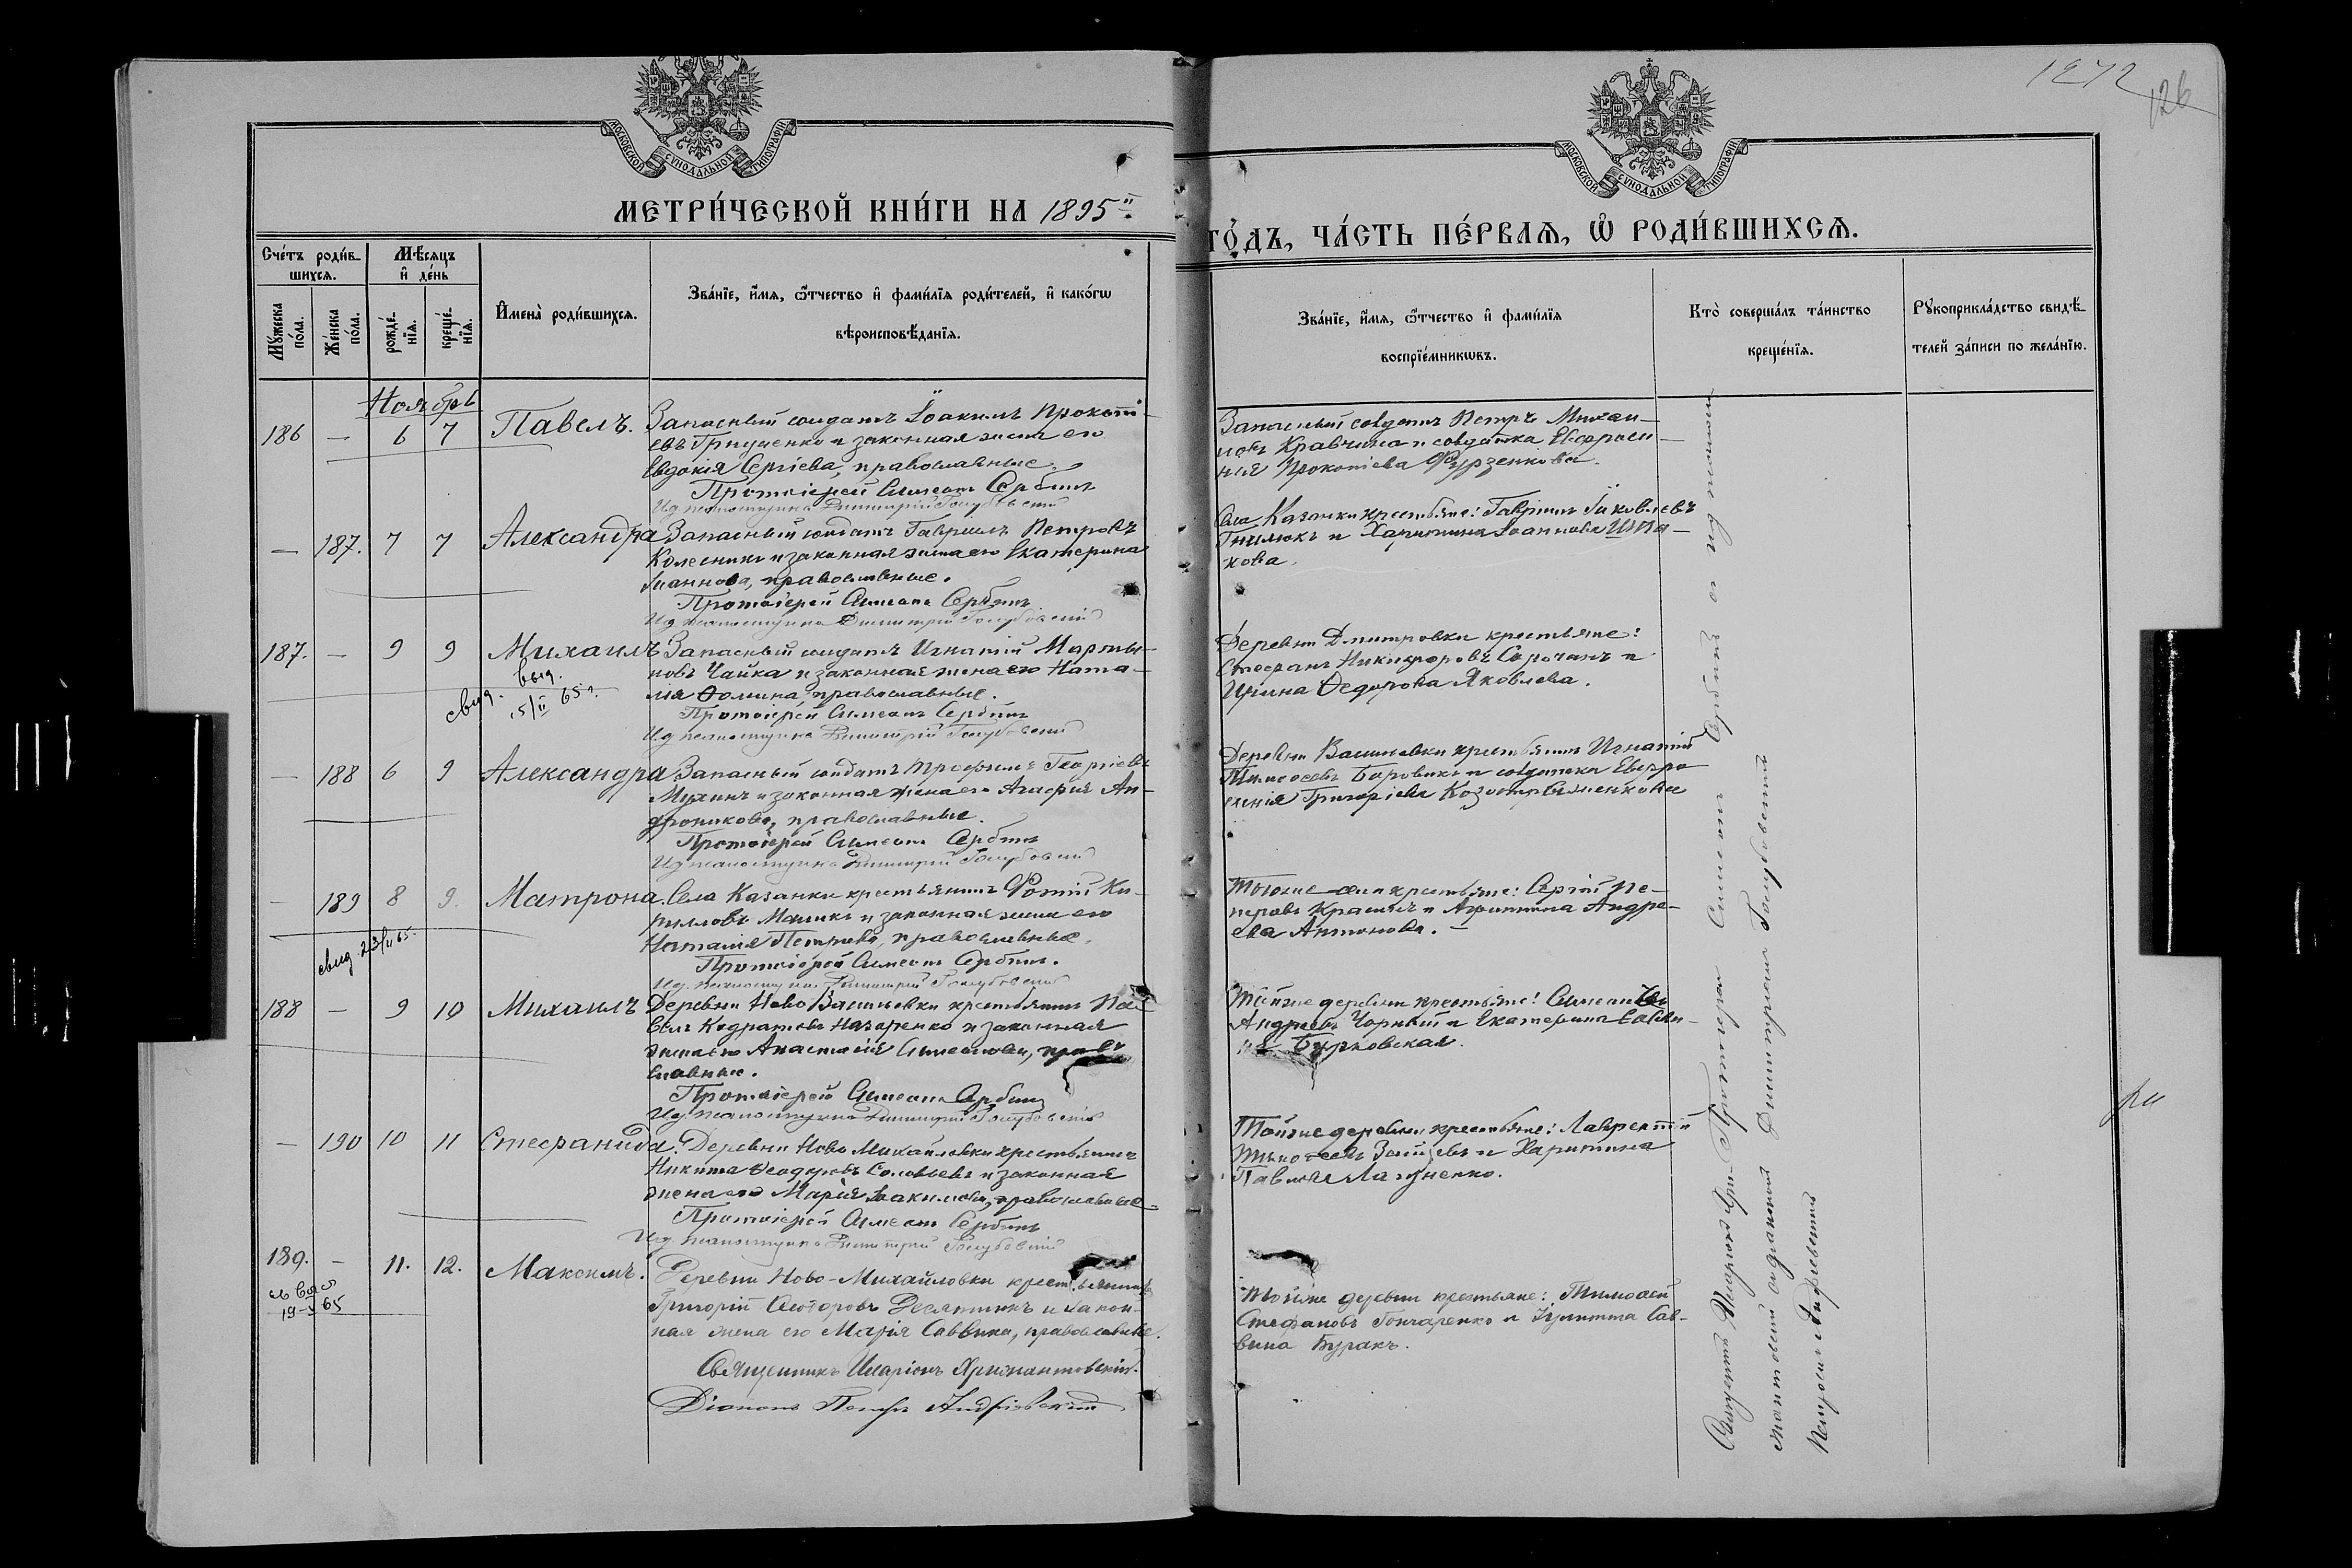 1272
126
МОСКОВСКОЙ СѴНОДАЛЬНОЙ ТИПОГРАФІИ
МОСКОВСКОЙ СѴНОДАЛЬНОЙ ТИПОГРАФІИ
МЕТРИ́ЧЕСКОЙ КНИ́ГИ НА 1895й
ГО́ДЪ, ЧА́СТЬ ПЕ́РВАѦ, Ѡ РОДИ́ВШИХСѦ.
Сче́тъ роди́в-
шихсѧ.
Мꙋ́жеска по́ла.
Же́нска по́ла.
Мѣ́сѧцъ
и҆ де́нь
рожде́-нїѧ.
креще́-нїѧ.
И҆мена̀ роди́вшихсѧ.
Зва́нїе, и҆́мѧ, ѻ҆́тчество и҆ фами́лїѧ роди́телей, и҆ како́гѡ
вѣроисповѣ́данїѧ.
Зва́нїе, и҆́мѧ, ѻ҆́тчество и҆ фами́лїѧ
воспрїе́мникѡвъ.
Кто̀ соверша́лъ та́инство
креще́нїѧ.
Рꙋкоприкла́дство свидѣ́-
телей за́писи по жела́нїю.
Ноябрь
186 — 6 7 Павелъ. Запасный солдатъ Іоакимъ Прокопі-
евъ Грищенко и законная жена его
Евдокія Сергіева, православные.
Протоіерей Симеонъ Сербинъ
И.д. псаломщика Димитрій Голубовскій
Запасный солдатъ Петръ Михаи-
ловъ Кравчина и солдатка Евфроси-
нія Прокопіева Фурзенкова.
— 187. 7 7 Александра Запасный солдатъ Гавріилъ Петровъ
Колесникъ и законная жена его Екатерина
Іоаннова, православные.
Протоіерей Симеонъ Сербинъ
И.д. псаломщика Димитрій Голубовскій
Села Казанки крестьяне: Гавріилъ Іаковлевъ
Гнилюкъ и Харитина Іоаннова Шпа-
кова.
187. — 9 9 Михаилъ Запасный солдатъ Игнатій Марты-
новъ Чайка и законная жена его Ната-
лія Ѳомина, православные.
свид. выд.
15/II 65 г.
Протоіерей Симеонъ Сербинъ
И.д. псаломщика Димитрій Голубовскій
Деревни Дмитровки крестьяне:
Стефанъ Никифоровъ Сорочанъ и
Ирина Ѳедорова Яковлева.
— 188 6 9 Александра Запасный солдатъ Трофимъ Георгіевъ
Мухинъ и законная жена его Агафія Ан-
дроникова, православные.
Протоіерей Симеонъ Сербинъ
И.д. псаломщика Димитрій Голубовскій
Деревни Васильевки крестьянинъ Игнатій
Тимоѳеевъ Боровикъ и солдатка Евфро-
синія Григоріева
— 189 8 9. Матрона. Села Казанки крестьянинъ Фотій Ки-
рилловъ и законная жена его
Наталія Петрова, православные.
свид. 23/II 65.
Протоіерей Симеонъ Сербинъ.
И.д. псаломщика Димитрій Голубовскій
Того же села крестьяне: Сергій Пе-
тровъ и Агриппина Андре-
ева Антонова. —
188 — 9 10 Михаилъ Деревни Ново Васильевки крестьянинъ Па-
велъ Кодратовъ Назаренко и законная
жена его Анастасія Симеонова, право
славные.
Протоіерей Симеонъ Сербинъ
И.д. псаломщика Димитрій Голубовскій
Той же деревни крестьяне: Симеонъ
Андреевъ Чорный и Екатерина Савви-
на Бурковская.
— 190 10 11 Стефанида. Деревни Ново Михайловки крестьянинъ
Никита Ѳеодоровъ Соловьевъ и законная
жена его Марія Іоакимова, православные.
Протоіерей Симеонъ Сербинъ
И.д. псаломщика Димитрій Голубовскій
Той же деревни крестьяне: Лаврентій
Тимоѳеевъ Зайцевъ и Харитина
Павлова Лагуненко.
189. — 11. 12. Максимъ. Деревни Ново-Михайловки крестьянинъ
Григорій Ѳеодоровъ Десятникъ и закон-
ная жена его Марія Саввина, православные.
19-V 65
Священникъ Иларіонъ Хрисантовскій.
Діаконъ Петръ Андріевскій
Той же деревни крестьяне: Тимоѳей
Стефановъ Гончаренко и Іулитта Сав-
вина Буракъ.
Протоіерей Симеонъ Сербинъ съ
Димитріемъ Голубовскимъ
Священникъ Иларіонъ Хри-
сантовскій съ діакономъ
Петромъ Андріевскимъ